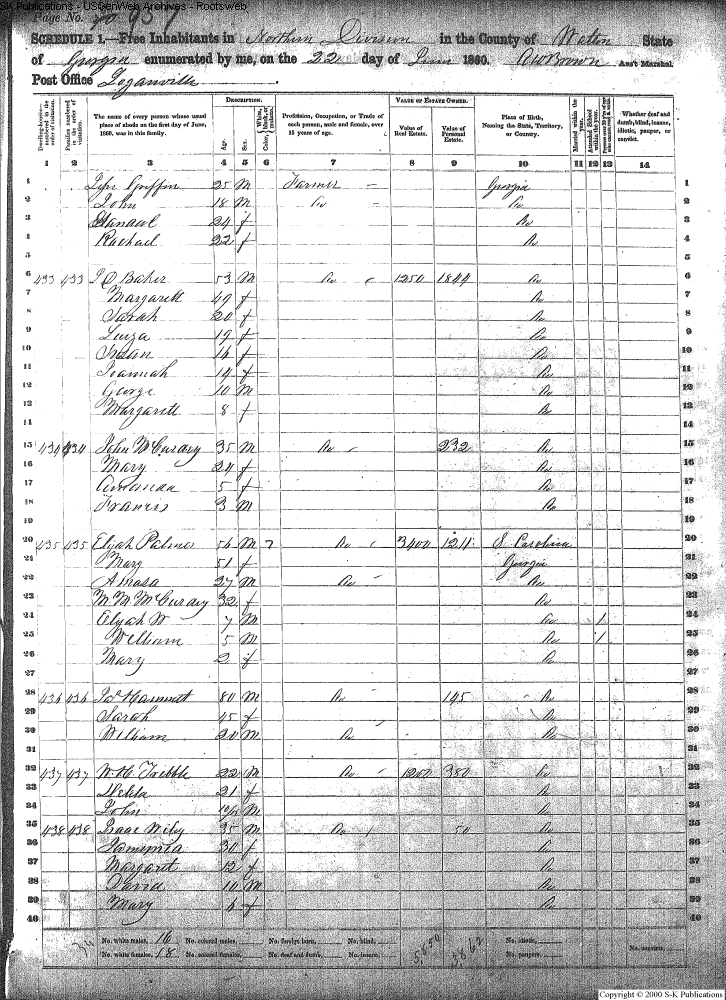 SK Publications - USGenWeb Archives - Rootsweb
Page No.
SCHEDULE 1.—Free Inhabitants in Northern Division in the County of Walton State
of Georgia enumerated by me, on the 22 day of June 1860. Ass't Marshal.
Post Office Loganville
DESCRIPTION. VALUE OF ESTATE OWNED.
Dwelling-houses—numbered in the order of visitation. Families numbered in the order of visitation. The name of every person whose usual place of abode on the first day of June, 1860, was in this family. Age. Sex. Color, Profession, Occupation, or Trade of each person, male and female, over 15 years of age. Value of Real Estate. Value of Personal Estate. Place of Birth, Naming the State, Territory, or Country. Married within the year. Attended School within the year. Whether deaf and dumb, blind, insane, idiotic, pauper, or convict.
1 2 3 4 5 6 7 8 9 10 11 12 13 14
1 Griffin 25 M Farmer Georgia 1
2 John 18 M Do Do 2
3 24 f Do 3
4 Rachael 22 f Do 4
5 5
6 433 433 Baker 53 M Do 1250 1844 Do 6
7 Margarett 49 f Do 7
8 Sarah 20 f Do 8
9 Luiza 19 f Do 9
10 16 f Do 10
11 14 f Do 11
12 George 10 M Do 12
Margarett 8 f Do 13
14
15 434 434 John McCurdy 35 M Do 232 Do 15
16 Mary 24 f Do 16
17 Amanda 5 f Do 17
18 Francis 3 M Do 18
19 19
20 435 435 Elijah Palmer 56 M 7 Do 3400 1211 S. Carolina 20
21 Mary 51 f Georgia 21
22 Amasa 27 M Do Do 22
23 M M McCurdy 32 f Do 23
24 Elijah W 7 M Do 1 24
25 William 5 M Do 1 25
26 Mary 2 f Do 26
27 27
28 436 436 Hammett 80 M Do 145 Do 28
29 Sarah 45 f Do 29
30 William 20 M Do Do 30
31 31
32 437 437 W. H. Tribble 22 M Do 1200 380 Do 32
33 21 f Do 33
34 John M Do 34
35 438 438 Isaac Wiley 35 M Do 50 Do 35
36 30 f Do 36
37 Margaret 12 f Do 37
38 David 10 M Do 38
39 Mary 6 f Do 39
40 40
No. white males, 16 No. colored males, No. foreign born, No. blind, 5850 3862 No. idiotic, No. convicts,
No. white females, 18 No. colored females, No. deaf and dumb, No. insane, No. paupers,
Copyright © 2000 S-K Publications